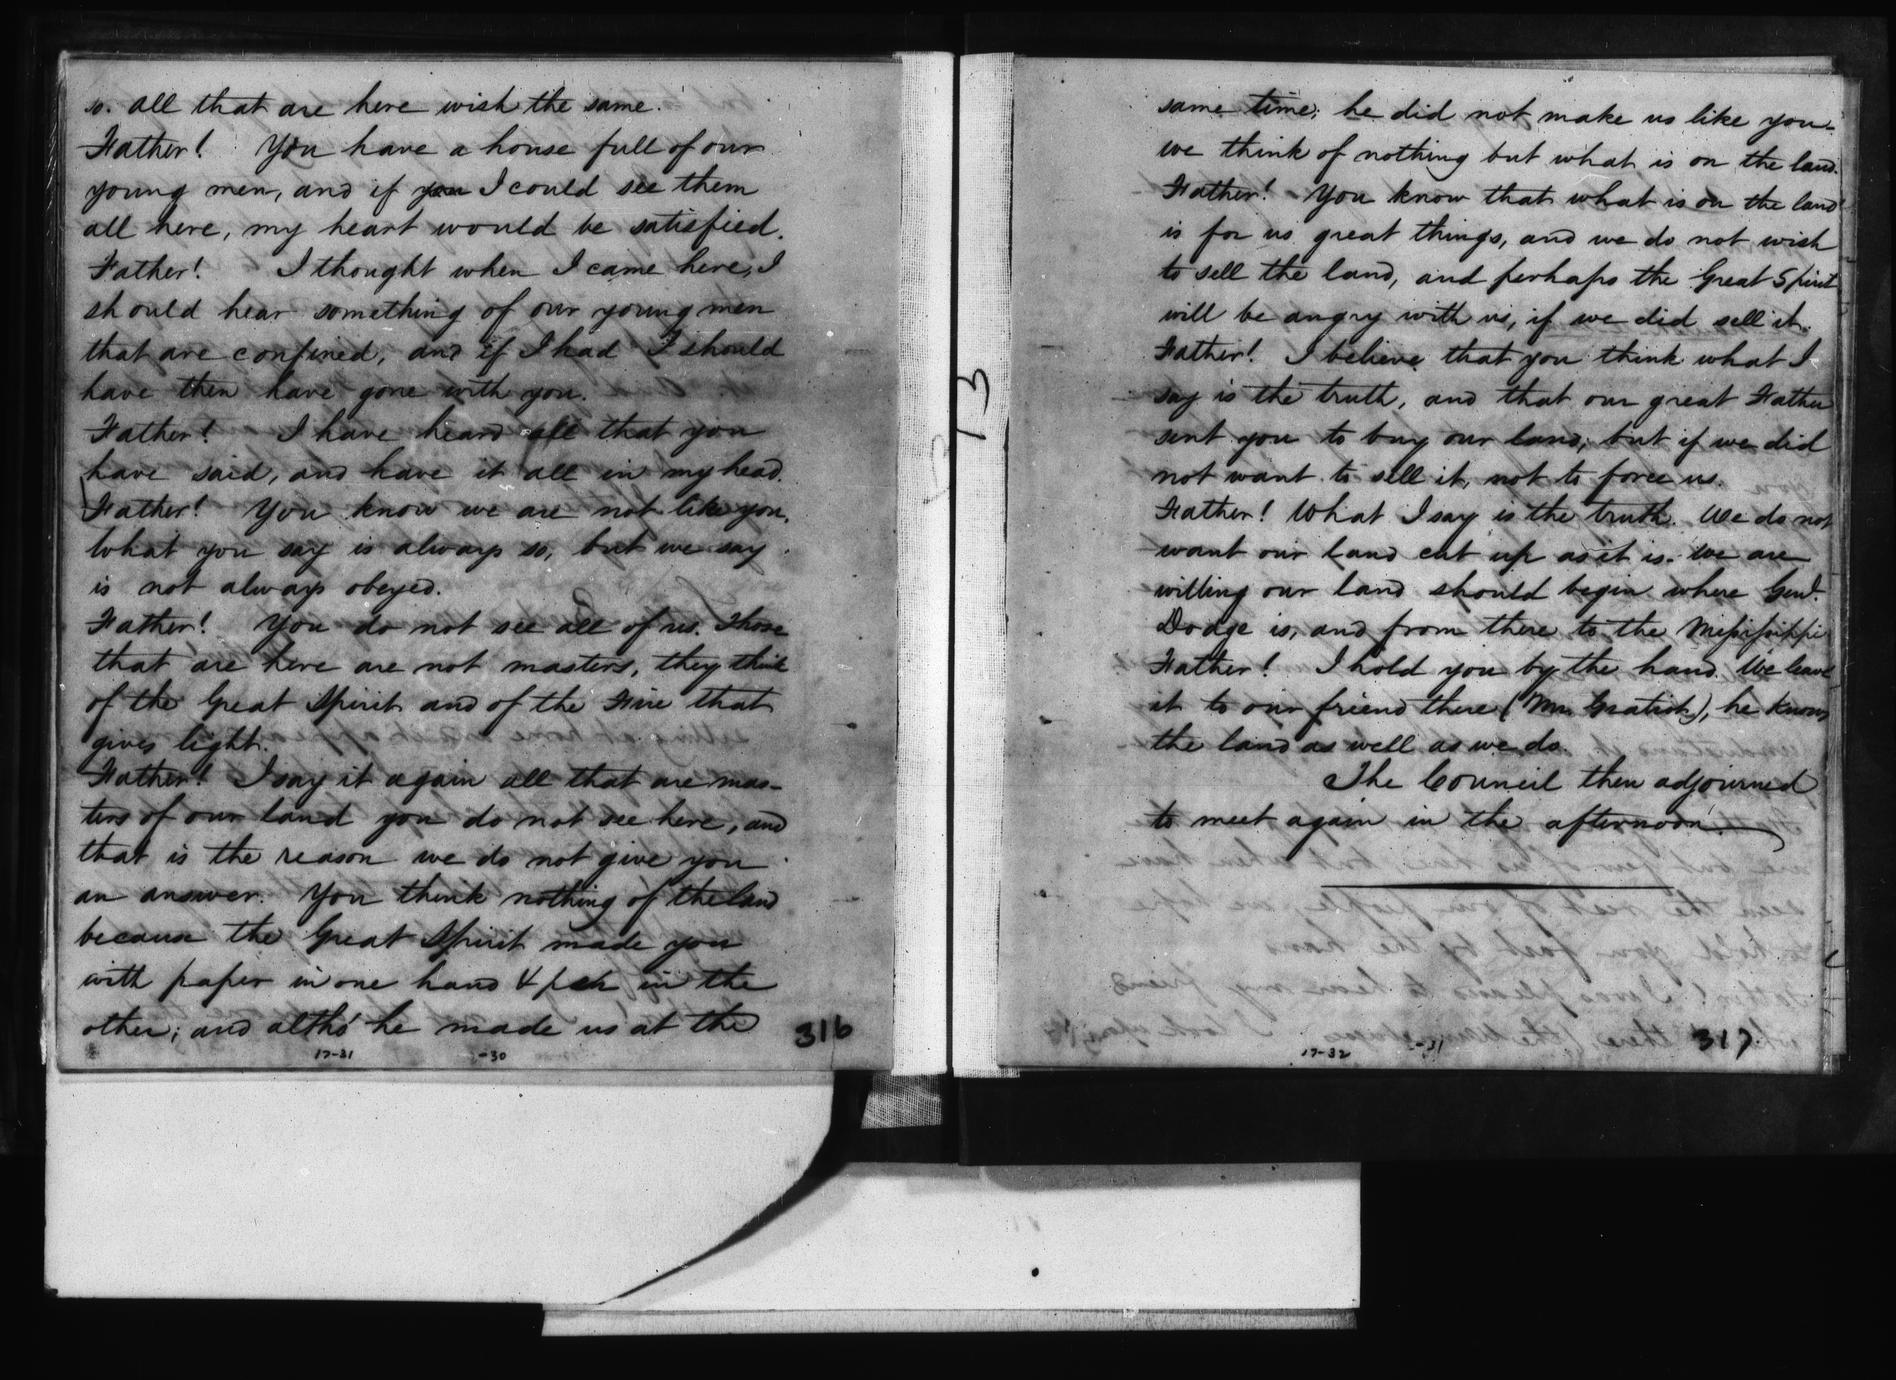 so. all that are here wish the same.
Father! You have a house full of our
young men, and if you I could see them
all here, my heart would be satisfied.
Father! I thought when I came here, I
should hear something of our young men
that are confined, and if I had I should
have then have gone with you.
Father! I have heard all that you
have said, and have it all in my head.
Father! You know we are not like you.
What you say is always so, but we say
is not always obeyed.
Father! You do not see all of us. Those
that are here are not masters, they think
of the Great Spirit and of the Fire that
gives light.
Father! I say it again all that are mas-
ters of our land you do not see here, and
that is the reason we do not give you
an answer. You think nothing of the land
because the Great Spirit made you
with paper in one hand & pen in the
other; and altho' he made us at the
316
17-31 -30
13
same time; he did not make us like you-
we think of nothing but what is on the land.
Father! You know that what is on the land
is for us great things, and we do not wish
to sell the land, and perhaps the Great Spirit
will be angry with us, if we did sell it.
Father! I believe that you think what I
say is the truth, and that our great Father
sent you to buy our land; but if we did
not want to sell it, not to force us.
Father! What I say is the truth. We do not
want our land cut up as it is. we are
willing our land should begin where Genl.
Dodge is, and from there to the Missisippi
Father! I hold you by the hand. We leave
it to our friend there (Mr. Gratiot), he knows
the land as well as we do.
The Council then adjourned
to meet again in the afternoon.
317
17-32 -31